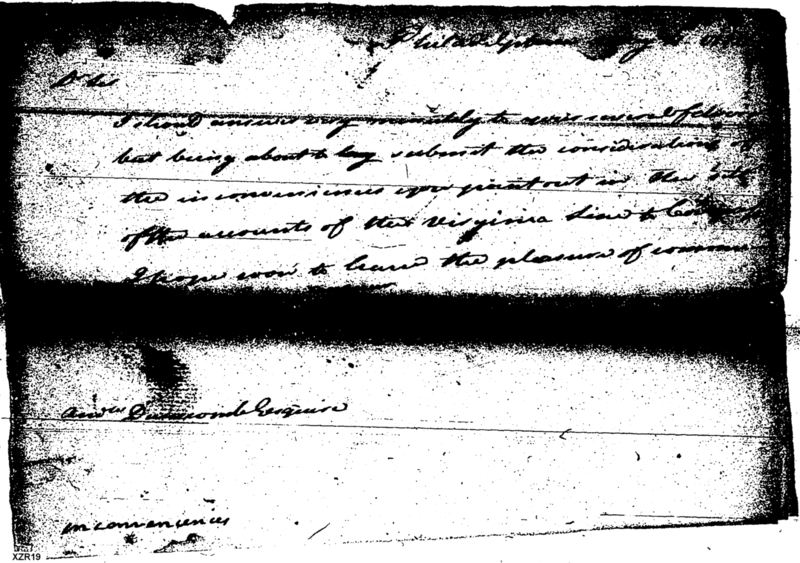 Philadelphia
Dr Sir
I should answer very minutely to your several
but being about to lay submit the consideration of
the inconveniences you point out in the
of the accounts of the Virginia line to Congress
I hope soon to have the pleasure of
Andw Dunscomb Esquire
inconveniences
XZR19